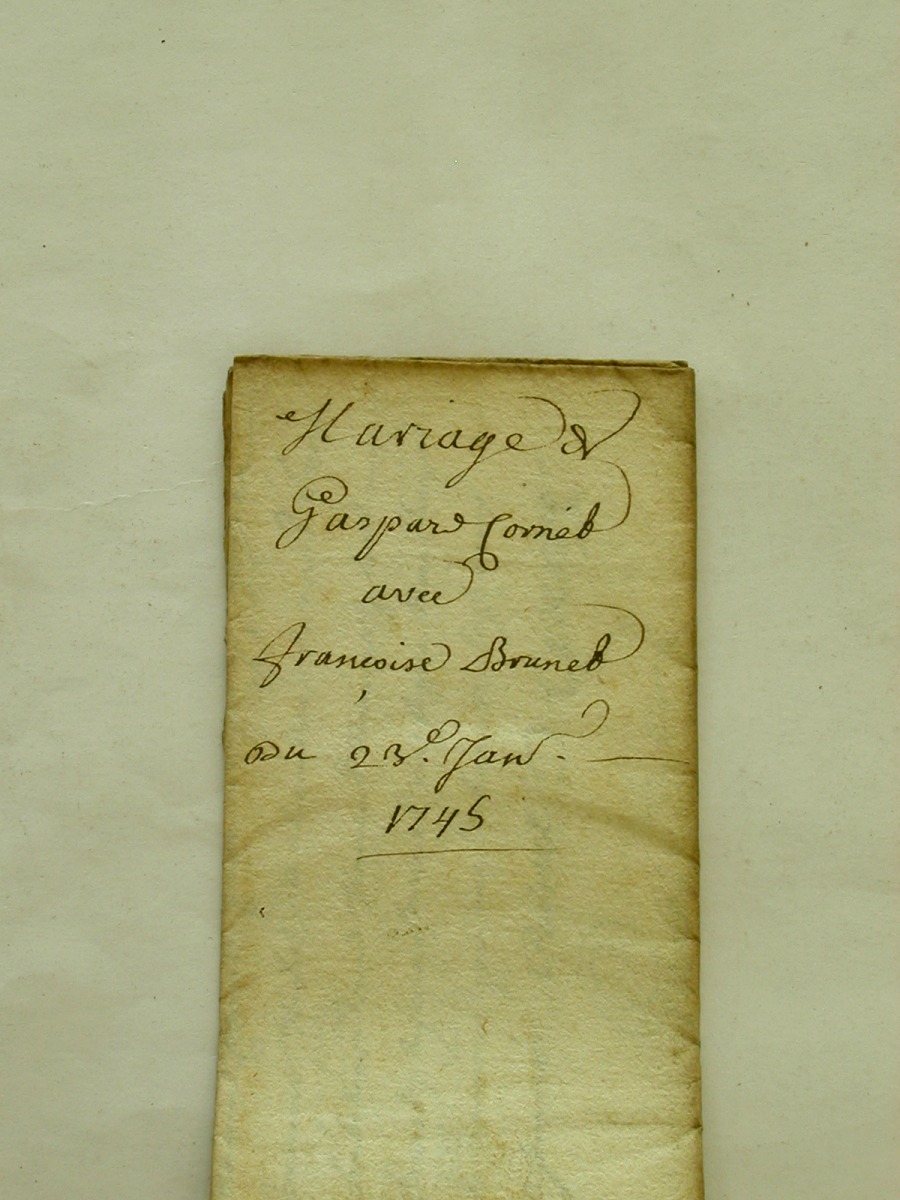 Mariage de
Gaspard Cornet
avec
françoise Brunet
Du 23e. Janvr.
1745